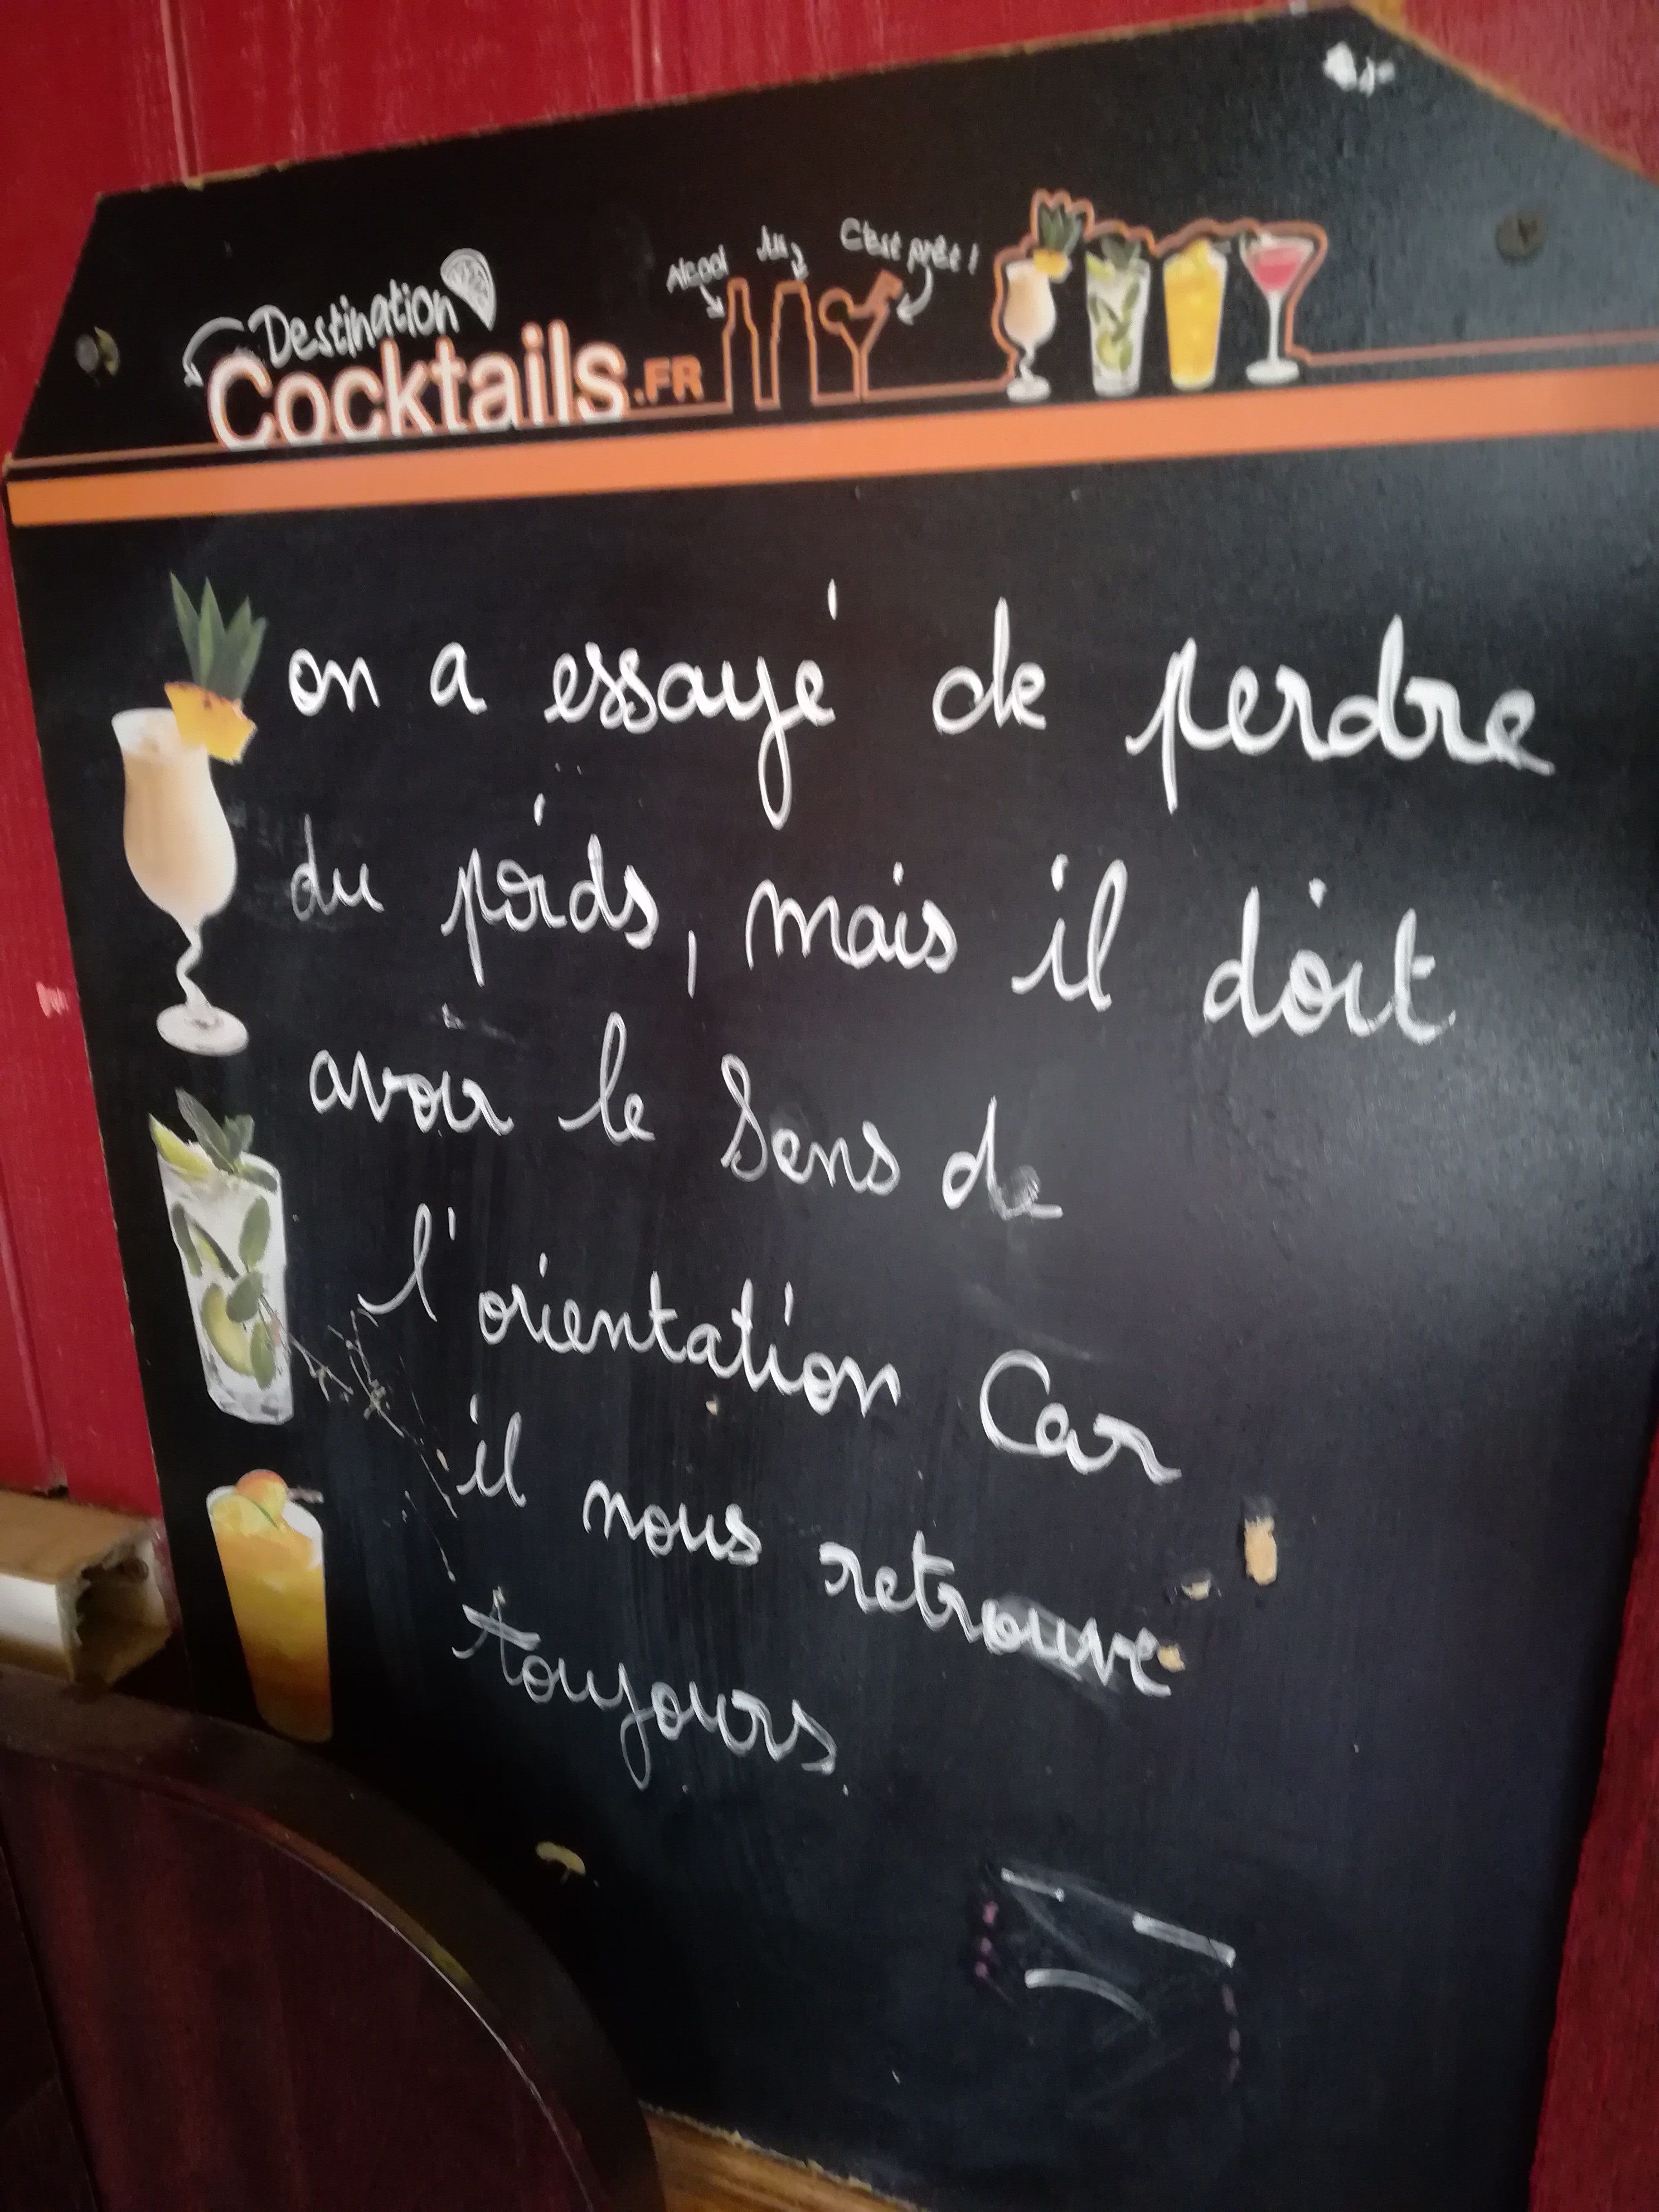 Destination
Cocktails.FR
Alcool
Jus
C'est prêt !
on a essayé de perdre
du poids, mais il doit
avoir le Sens de
l'orientation Car
il nous retrouve
toujours